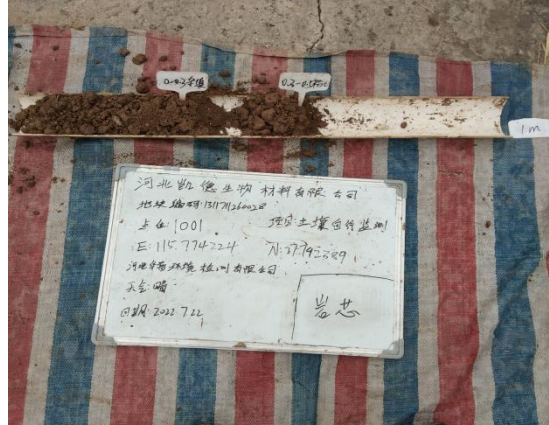 0-0.3
0.3-0.5
1m
河北凯德生物材料有限公司
地块编码:1311712600
点位: 1001 项目:土壤自行监测
E: 115.774224 N:37.792389
河北 环境检测有限公司
天气:晴
日期:2022.7.22
岩芯